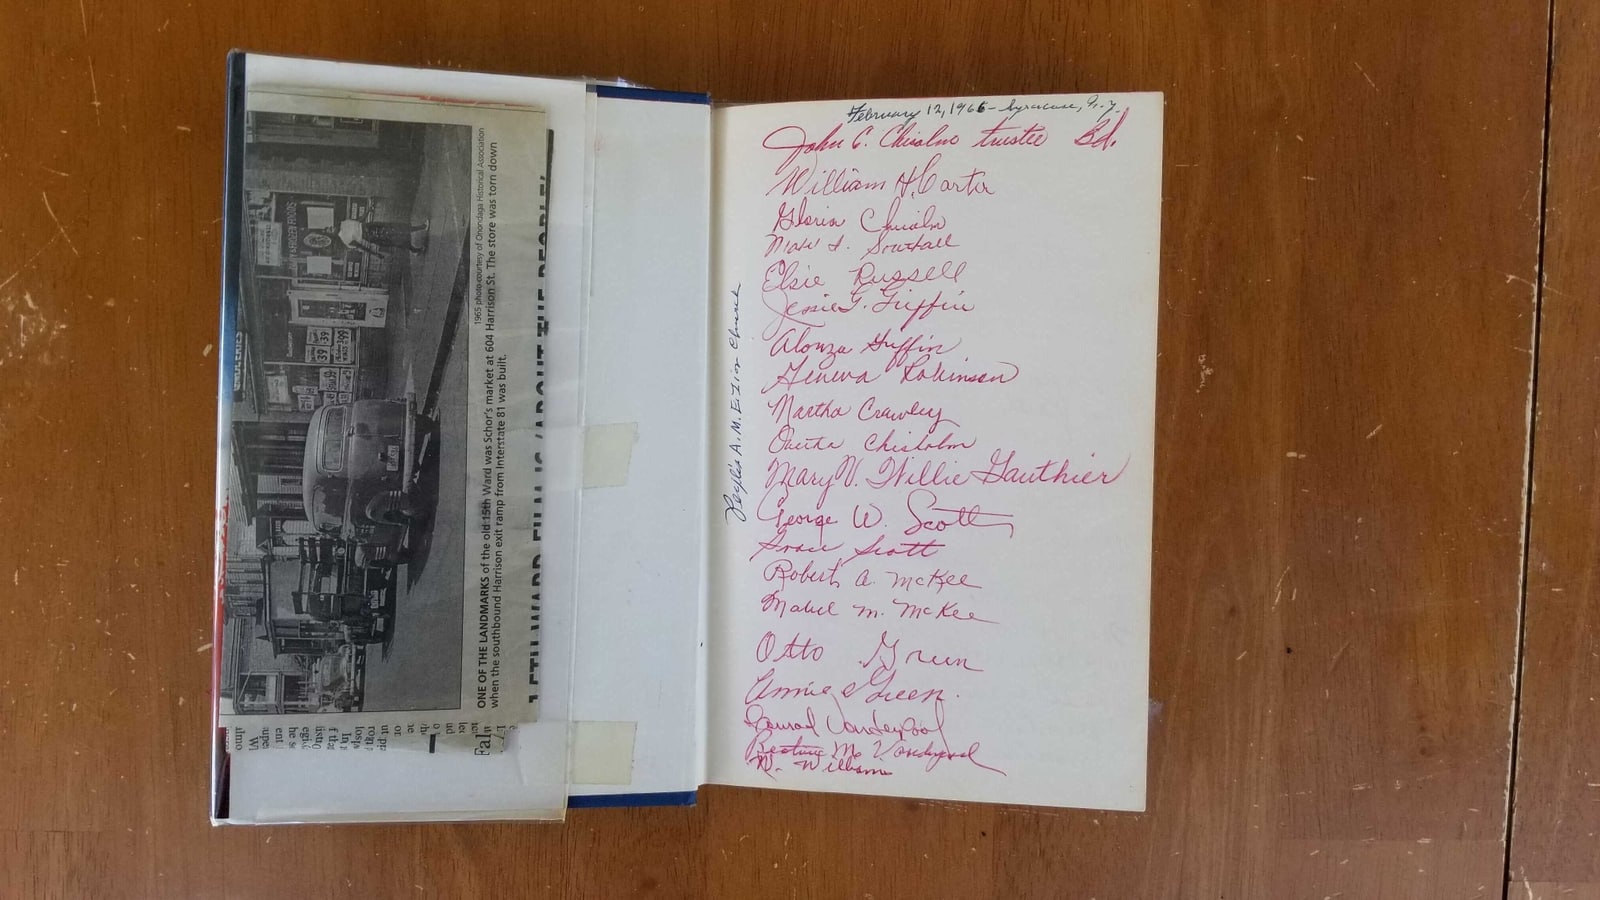 GROCERIES
1965 photo courtesy of Onondaga Historical Association
ONE OF THE LANDMARKS of the old 15th Ward was Schor's market at 604 Harrison St. The store was torn down
when the southbound Harrison exit ramp from Interstate 81 was built.
15TH WARD FILM IS 'ABOUT THE PEOPLE'
People's A.M.E. Zion Church
February 12, 1966 - Syracuse, N.Y.
John C. Chisolm trustee Bd.
William H. Carter
Gloria Chisolm
Southall
Elsie Russell
Jessie G. Griffin
Alonza Griffin
Geneva Robinson
Martha Crawley
Chisholm
Mary V. Willie Gauthier
George W. Scott
Grace Scott
Robert A. McKee
Mabel M. McKee
Otto Green
Annie Green.
Conrad Vanderpool
M. Vanderpool
W. Williams